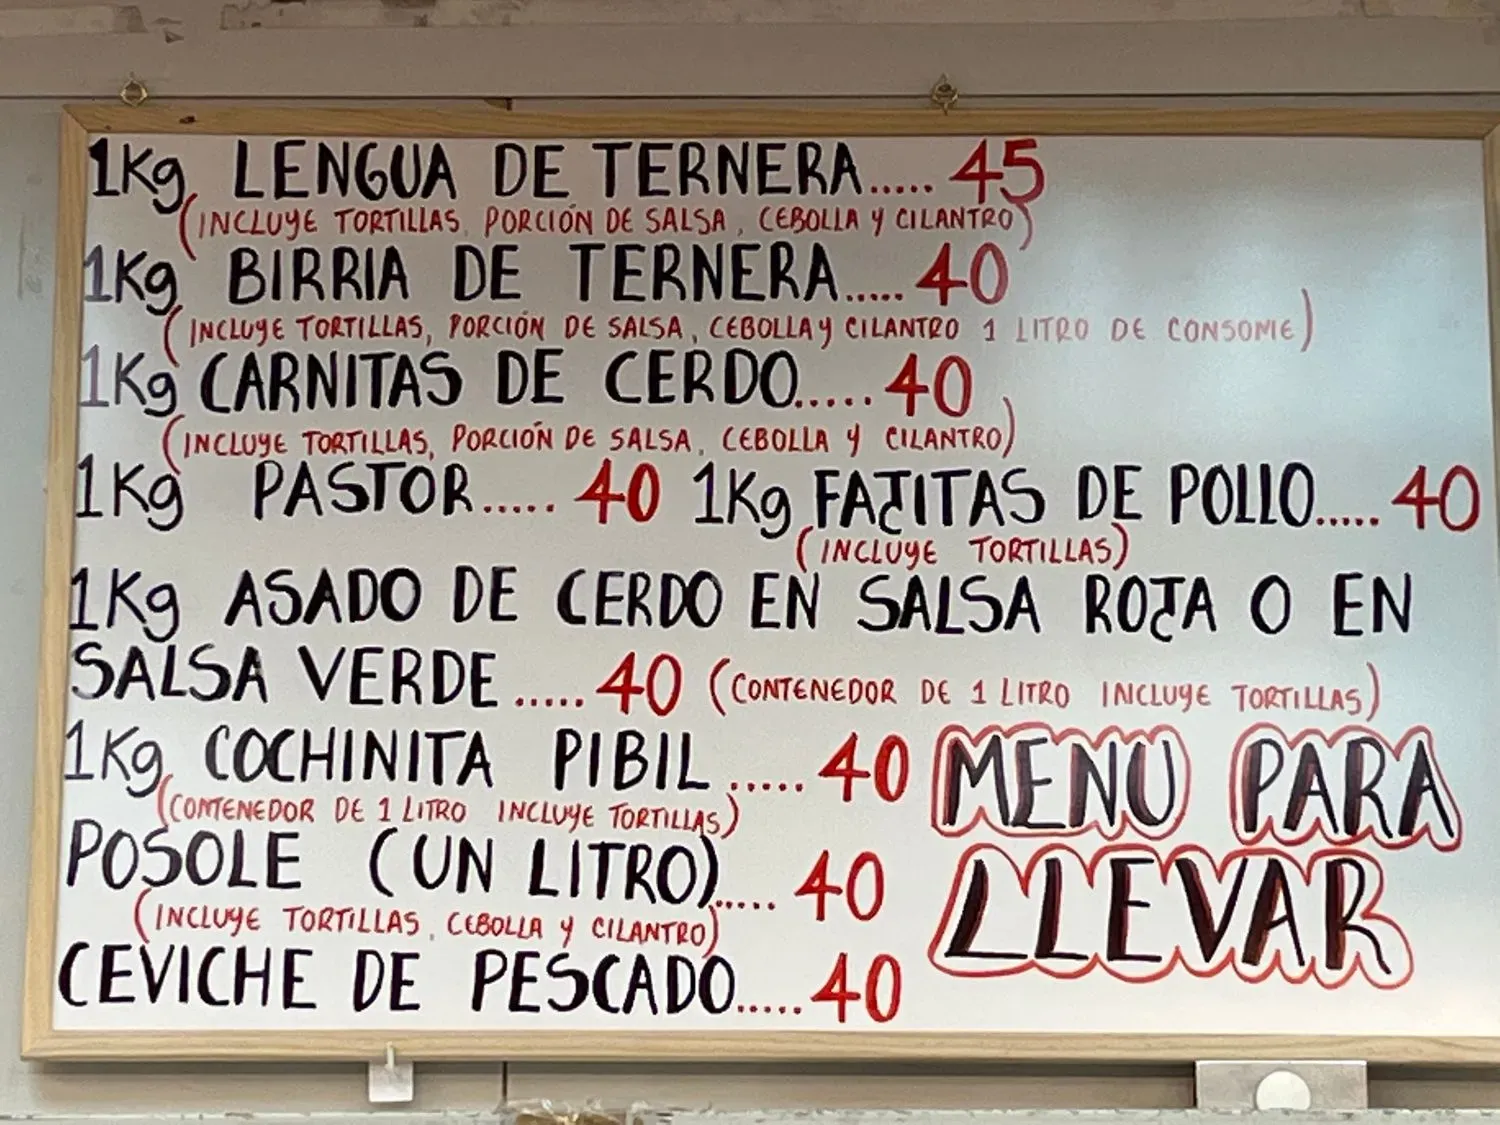 1Kg LENGUA DE TERNERA..... 45
(INCLUYE TORTILLAS, PORCIÓN DE SALSA, CEBOLLA Y CILANTRO)
1Kg BIRRIA DE TERNERA..... 40
(INCLUYE TORTILLAS, PORCIÓN DE SALSA, CEBOLLA Y CILANTRO 1 LITRO DE CONSOME)
1Kg CARNITAS DE CERDO..... 40
(INCLUYE TORTILLAS, PORCIÓN DE SALSA, CEBOLLA Y CILANTRO)
1Kg PASTOR..... 40 1Kg FAJITAS DE POLLO..... 40
(INCLUYE TORTILLAS)
1Kg ASADO DE CERDO EN SALSA ROJA O EN
SALSA VERDE..... 40 (CONTENEDOR DE 1 LITRO INCLUYE TORTILLAS)
1Kg COCHINITA PIBIL..... 40
(CONTENEDOR DE 1 LITRO INCLUYE TORTILLAS)
POSOLE (UN LITRO)..... 40
(INCLUYE TORTILLAS, CEBOLLA Y CILANTRO)
CEVICHE DE PESCADO..... 40
MENU PARA
LLEVAR